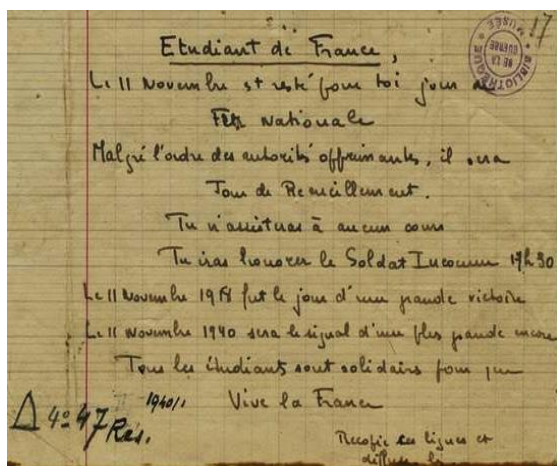 17
BIBLIOTHÈQUE MUSÉE
DE LA
GUERRE
Etudiant de France,
Le 11 Novembre est resté pour toi jour de
Fête Nationale
Malgré l'ordre des autorités opprimantes, il sera
Jour de Recueillement.
Tu n'assisteras à aucun cours
Tu iras honorer le Soldat Inconnu 17h30
Le 11 Novembre 1918 fut le jour d'une grande victoire
Le 11 Novembre 1940 sera le signal d'une plus grande encore
Tous les étudiants sont solidaires pour que
Vive la France
1940/1
Δ 4º 47 Res.
Recopie ces lignes et
diffuse